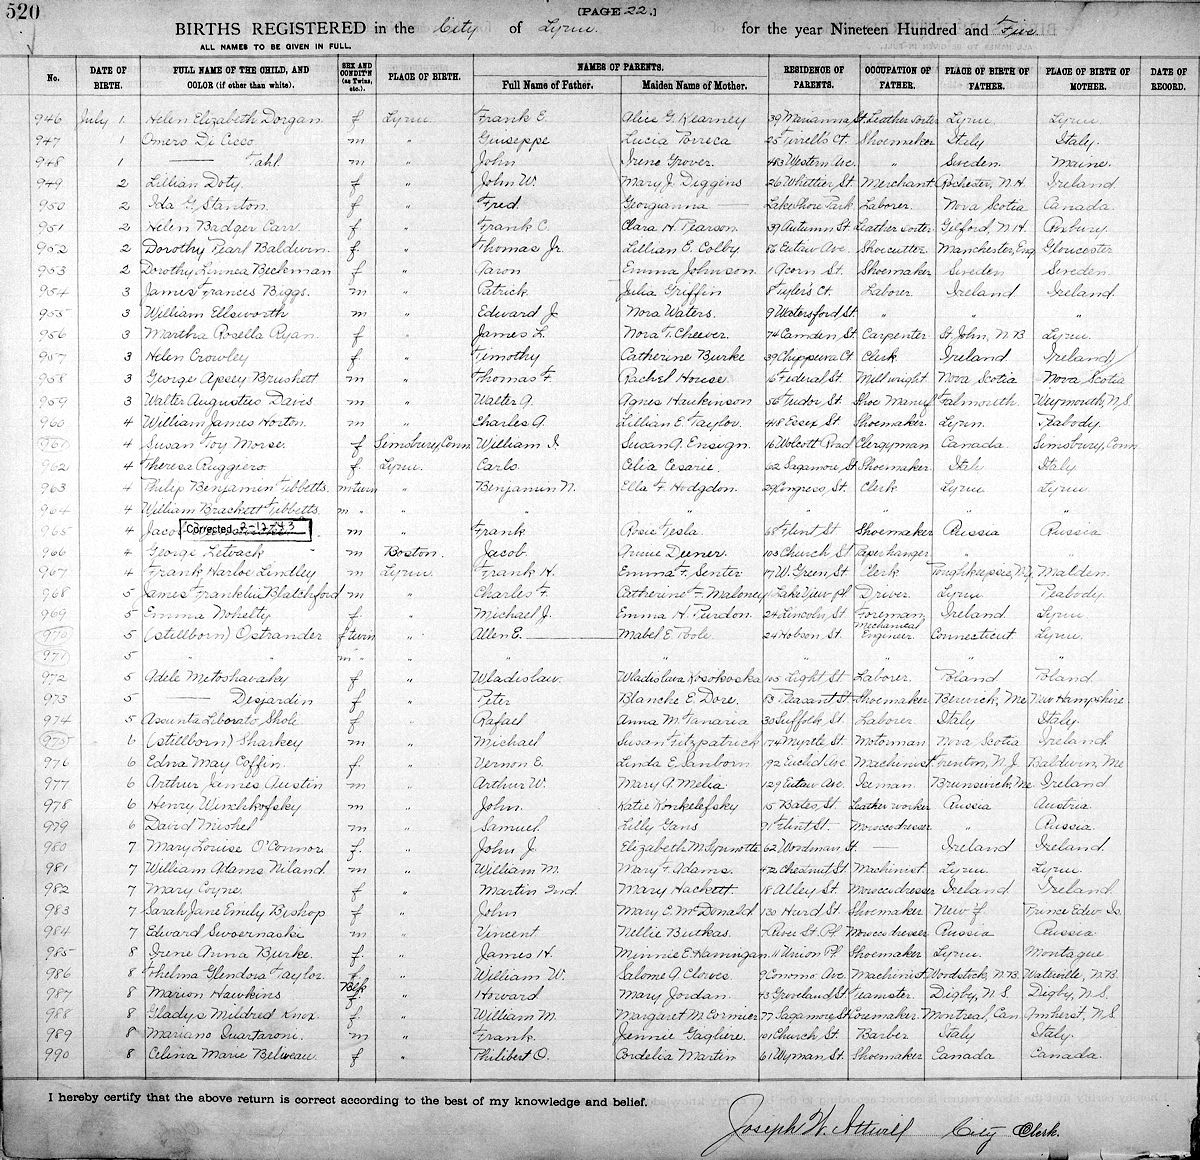 520
[PAGE 22.]
BIRTHS REGISTERED in the City of Lynn for the year Nineteen Hundred and Five
ALL NAMES TO BE GIVEN IN FULL.
No. DATE OF BIRTH. FULL NAME OF THE CHILD, AND COLOR (if other than white). SEX AND CONDIT'N (as Twins, etc.). PLACE OF BIRTH. NAMES OF PARENTS. Full Name of Father. Maiden Name of Mother. RESIDENCE OF PARENTS. OCCUPATION OF FATHER. PLACE OF BIRTH OF FATHER. PLACE OF BIRTH OF MOTHER. DATE OF RECORD.
946 July 1 Helen Elizabeth Dorgan f Lynn Frank E. Alice G. Kearney 39 Marianna St. Leather sorter Lynn Lynn
947 1 Omero Di Cicso m " Guiseppe Lucia Porreca 25 Tirrell's Ct. Shoemaker Italy Italy
948 1 —— Tahl m " John Irene Grover 483 Western Ave. " Sweden Maine
949 2 Lillian Doty f " John W. Mary J. Diggins 26 Whittier St. Merchant Rochester, N.H. Ireland
950 2 Ida G. Stanton f " Fred Georgianna —— Lake Shore Park Laborer Nova Scotia Canada
951 2 Helen Badger Carr f " Frank C. Clara H. Pearson 39 Autumn St. Leather sorter Gilford, N.H. Roxbury
952 2 Dorothy Pearl Baldwin f " Thomas Jr. Lillian E. Colby 86 Eutaw Ave. Shoecutter Manchester, Eng. Gloucester
953 2 Dorothy Linnea Beckman f " Aaron Emma Johnson 1 Acorn St. Shoemaker Sweden Sweden
954 3 James Francis Biggs m " Patrick Julia Griffin 8 Tyler's Ct. Laborer Ireland Ireland
955 3 William Ellsworth m " Edward J. Nora Waters 9 Watersford St. " " "
956 3 Martha Rosella Ryan f " James L. Nora T. Cheever 74 Camden St. Carpenter St. John, N.B. Lynn
957 3 Helen Crowley f " Timothy Catherine Burke 39 Chippewa Ct Clerk Ireland Ireland
958 3 George Apsey Brushett m " Thomas F. Rachel House 16 Federal St. Millwright Nova Scotia Nova Scotia
959 3 Walter Augustus Davis m " Walter A. Agnes Hankinson 56 Tudor St. Shoe Manuf Falmouth Weymouth, N.S.
960 4 William James Horton m " Charles A. Lillian E. Taylor 418 Essex St. Shoemaker Lynn Peabody
961 4 Susan Foy Morse f Simsbury, Conn. William I. Susan A. Ensign 16 Wolcott Road Clergyman Canada Simsbury, Conn
962 4 Theresa Ruggiero f Lynn Carlo Celia Cesarie 62 Sagamore St Shoemaker Italy Italy
963 4 Philip Benjamin Tibbetts m twin " Benjamin N. Ella F. Hodgdon 29 Congress St. Clerk Lynn Lynn
964 4 William Brackett Tibbetts m " " " " " " " "
965 4 Jacob Corrected 2-12-43 m " Frank Rosie Tesla 68 Flint St Shoemaker Russia Russia
966 4 George Letvack m Boston Jacob Annie Deener 103 Church St Paperhanger " "
967 4 Frank Harloe Lindley m Lynn Frank H. Emma F. Senter 17 W. Green St. Clerk Poughkeepsie, N.Y. Malden
968 5 James Franklin Blatchford m " Charles F. Catherine F. Maloney 1 Lake View Pl Driver Lynn Peabody
969 5 Emma Nohelty f " Michael J. Emma H. Purdon 24 Lincoln St Foreman Ireland Lynn
970 5 (stillborn) Ostrander f twin " Allen E. Mabel E. Poole 24 Hobson St. Mechanical Engineer Connecticut Lynn
971 5 " " m " " " " " " " "
972 5 Adele f " Wladislaw Wladislava 105 Light St Laborer Poland Poland
973 5 —— Desjardin f " Peter Blanche E. Dore 83 Pleasant St Shoemaker Berwick, Me New Hampshire
974 5 Assunta Liborato Shole f " Rafael Anna M. Tanaria 30 Suffolk St. Laborer Italy Italy
975 6 (stillborn) Sharkey m " Michael Susan Fitzpatrick 174 Myrtle St. Motorman Nova Scotia Ireland
976 6 Edna May Coffin f " Vernon E. Linda E. Sanborn 192 Euclid Ave Machinist Trenton, N.J. Baldwin, Me
977 6 Arthur James Austin m " Arthur W. Mary A. Melia 129 Eutaw Ave. Iceman Brunswick, Me Ireland
978 6 Henry Winchkofsky m " John Katie Konkelefsky 15 Bates St. Leather worker Russia Austria
979 6 David Mishel m " Samuel Lilly Gans 91 Flint St. Moroccodresser " Russia
980 7 Mary Louise O'Connor f " John J. Elizabeth M. 62 Woodman St. —— Ireland Ireland
981 7 William Adams Niland m " William M. Mary F. Adams 42 Chestnut St Machinist Lynn Lynn
982 7 Mary Coyne f " Martin 2nd Mary Hackett 18 Alley St. Moroccodresser Ireland Ireland
983 7 Sarah Jane Emily Bishop f " John Mary C. McDonald 130 Hurd St. Shoemaker New'f Prince Edw. Is.
984 7 Edward m " Vincent Nellie Butkas River St. Pl Moroccodresser Russia Russia
985 8 Irene Anna Burke f " James H. Minnie E. Hannigan 11 Union Pl. Shoemaker Lynn Montague
986 8 Thelma Glendora Taylor f " William W. Salome A. Clowes 9 Conomo Ave. Machinist Woodstock, N.B. Waterville, N.B.
987 8 Marion Hawkins Blk f " Howard Mary Jordan 43 Groveland St Teamster Digby, N.S. Digby, N.S.
988 8 Gladys Mildred Knox f " William M. Margaret M. Cormier 77 Sagamore St Coremaker Montreal, Can Amherst, N.S.
989 8 Mariano Quartarone m " Frank Jennie Gagliere 101 Church St. Barber Italy Italy
990 8 Celina Marie Beliveau f " Philibert O. Cordelia Martin 61 Wyman St. Shoemaker Canada Canada
I hereby certify that the above return is correct according to the best of my knowledge and belief.
Joseph W. Attwill City Clerk.